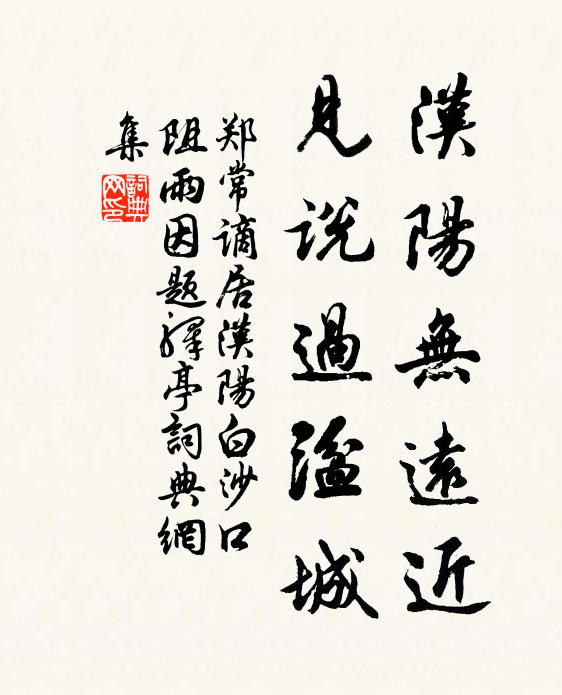 漢陽無遠近
見説過湓城
郑常謫居漢陽白沙口
阻雨因題驛亭詞典網
集
詞典
网印